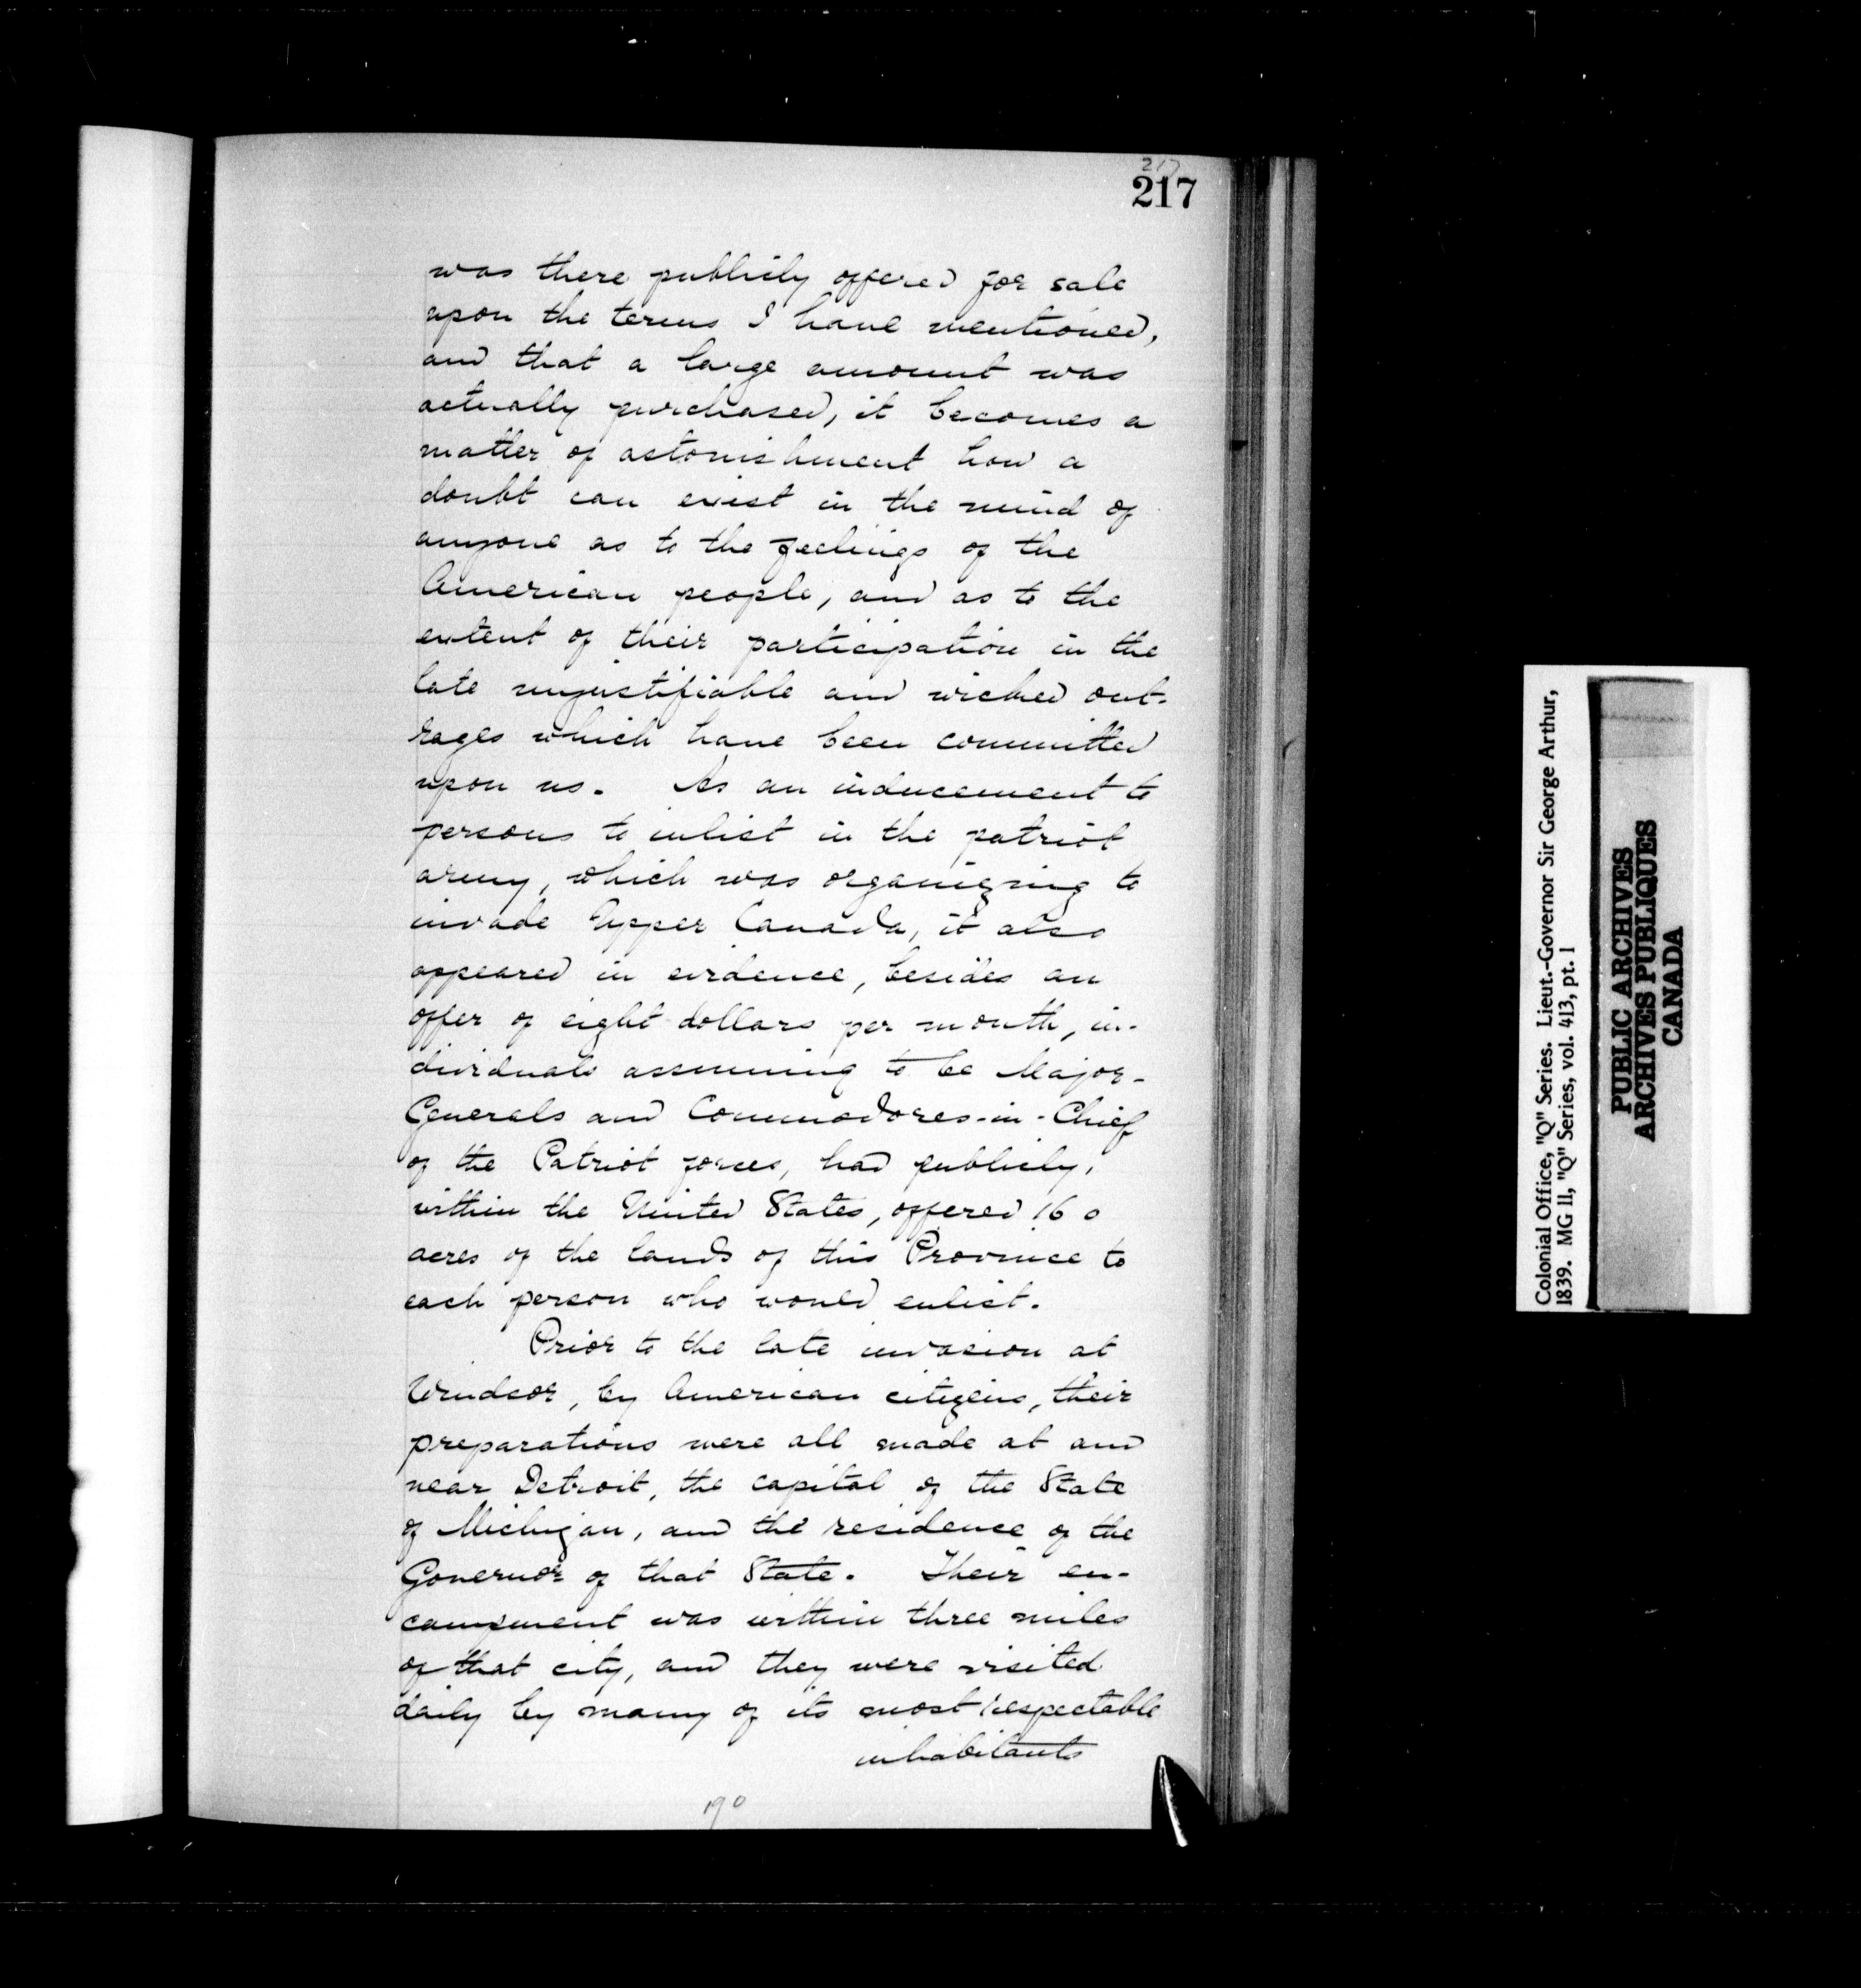 217
217
was there publicly offered for sale
upon the terms I have mentioned,
and that a large amount was
actually purchased, it becomes a
matter of astonishment how a
doubt can exist in the mind of
anyone as to the feelings of the
American people, and as to the
extent of their participation in the
late unjustifiable and wicked out-
rages which have been committed
upon us. As an inducement to
persons to inlist in the patriot
army, which was organizing to
invade Upper Canada, it also
appeared in evidence, besides an
offer of eight dollars per month, in-
dividuals assuming to be Major-
Generals and Commodores-in-Chief
of the Patriot forces, had publicly,
within the United States, offered 160
acres of the lands of this Province to
each person who would enlist.
Prior to the late invasion at
Windsor, by American citizens, their
preparations were all made at and
near Detroit, the capital of the State
of Michigan, and the residence of the
Governor of that State. Their en-
campment was within three miles
of that city, and they were visited
daily by many of its most respectable
inhabitants
190
Colonial Office, "Q" Series. Lieut.-Governor Sir George Arthur,
1839. MG 11, "Q" Series, vol. 413, pt. 1
PUBLIC ARCHIVES
ARCHIVES PUBLIQUES
CANADA